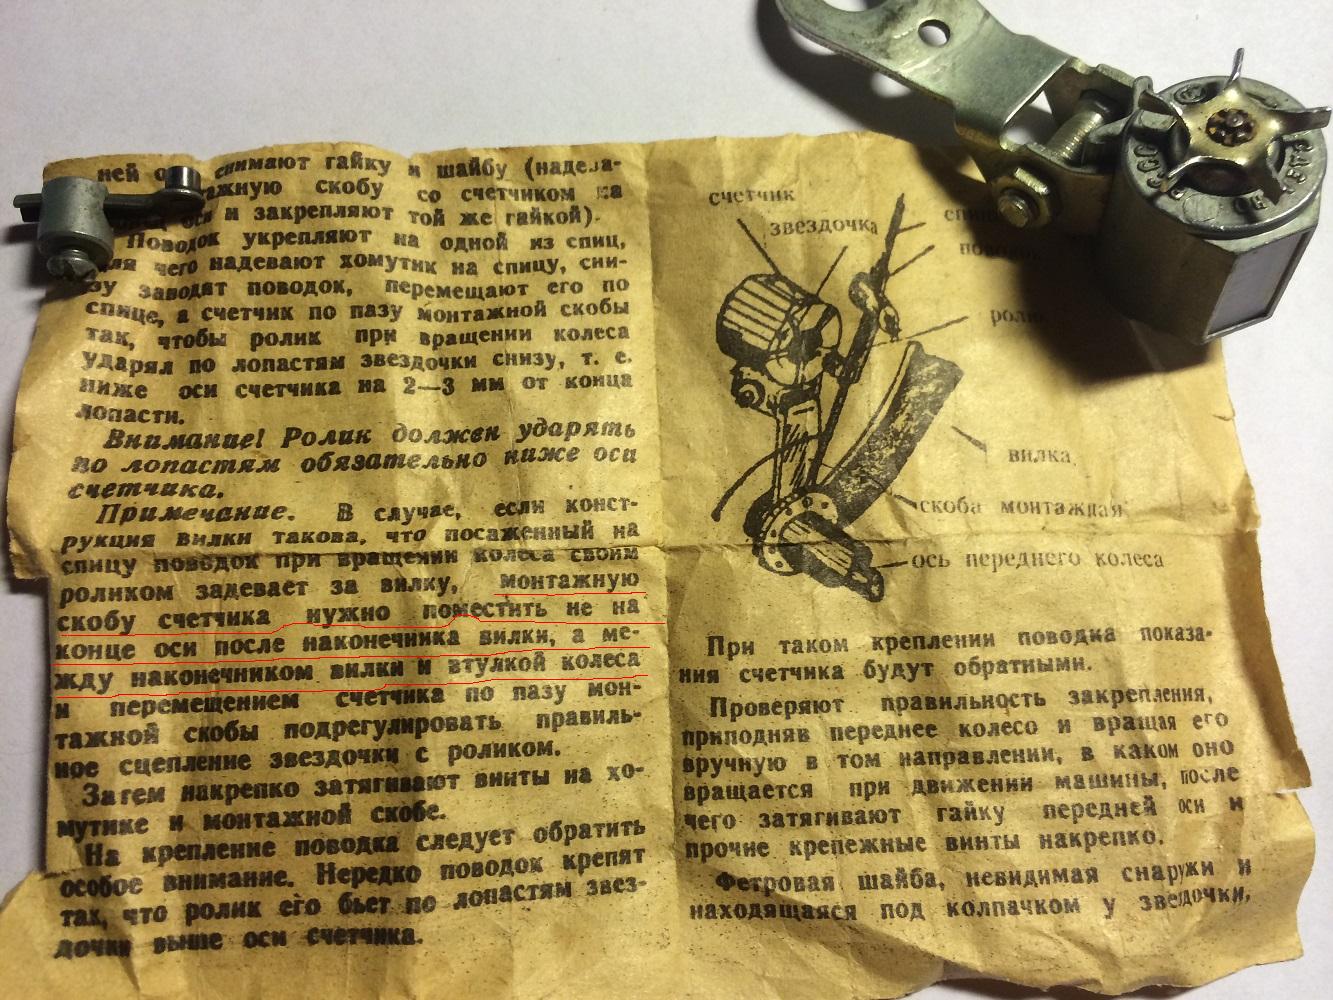 ней снимают гайку и шайбу (надева-
скобу со счетчиком на
оси и закрепляют той же гайкой).
Поводок укрепляют на одной из спиц,
для чего надевают хомутик на спицу, сни-
зу заводят поводок, перемещают его по
спице, а счетчик по пазу монтажной скобы
так, чтобы ролик при вращении колеса
ударял по лопастям звездочки снизу, т. е.
ниже оси счетчика на 2—3 мм от конца
лопасти.
Внимание! Ролик должен ударять
по лопастям обязательно ниже оси
счетчика.
Примечание. В случае, если конст-
рукция вилки такова, что посаженный на
спицу поводок при вращении колеса своим
роликом задевает за вилку, монтажную
скобу счетчика нужно поместить не на
конце оси после наконечника вилки, а ме-
жду наконечником вилки и втулкой колеса
и перемещением счетчика по пазу мон-
тажной скобы подрегулировать правиль-
ное сцепление звездочки с роликом.
Затем накрепко затягивают винты на хо-
мутике и монтажной скобе.
На крепление поводка следует обратить
особое внимание. Нередко поводок крепят
так, что ролик его бьет по лопастям звез-
дочки выше оси счетчика.
счетчик
звездочка
вилка
скоба монтажная
ось переднего колеса
При таком креплении поводка показа-
ния счетчика будут обратными.
Проверяют правильность закрепления,
приподняв переднее колесо и вращая его
вручную в том направлении, в каком оно
вращается при движении машины, после
чего затягивают гайку передней оси и
прочие крепежные винты накрепко.
Фетровая шайба, невидимая снаружи и
находящаяся под колпачком у звездочки,